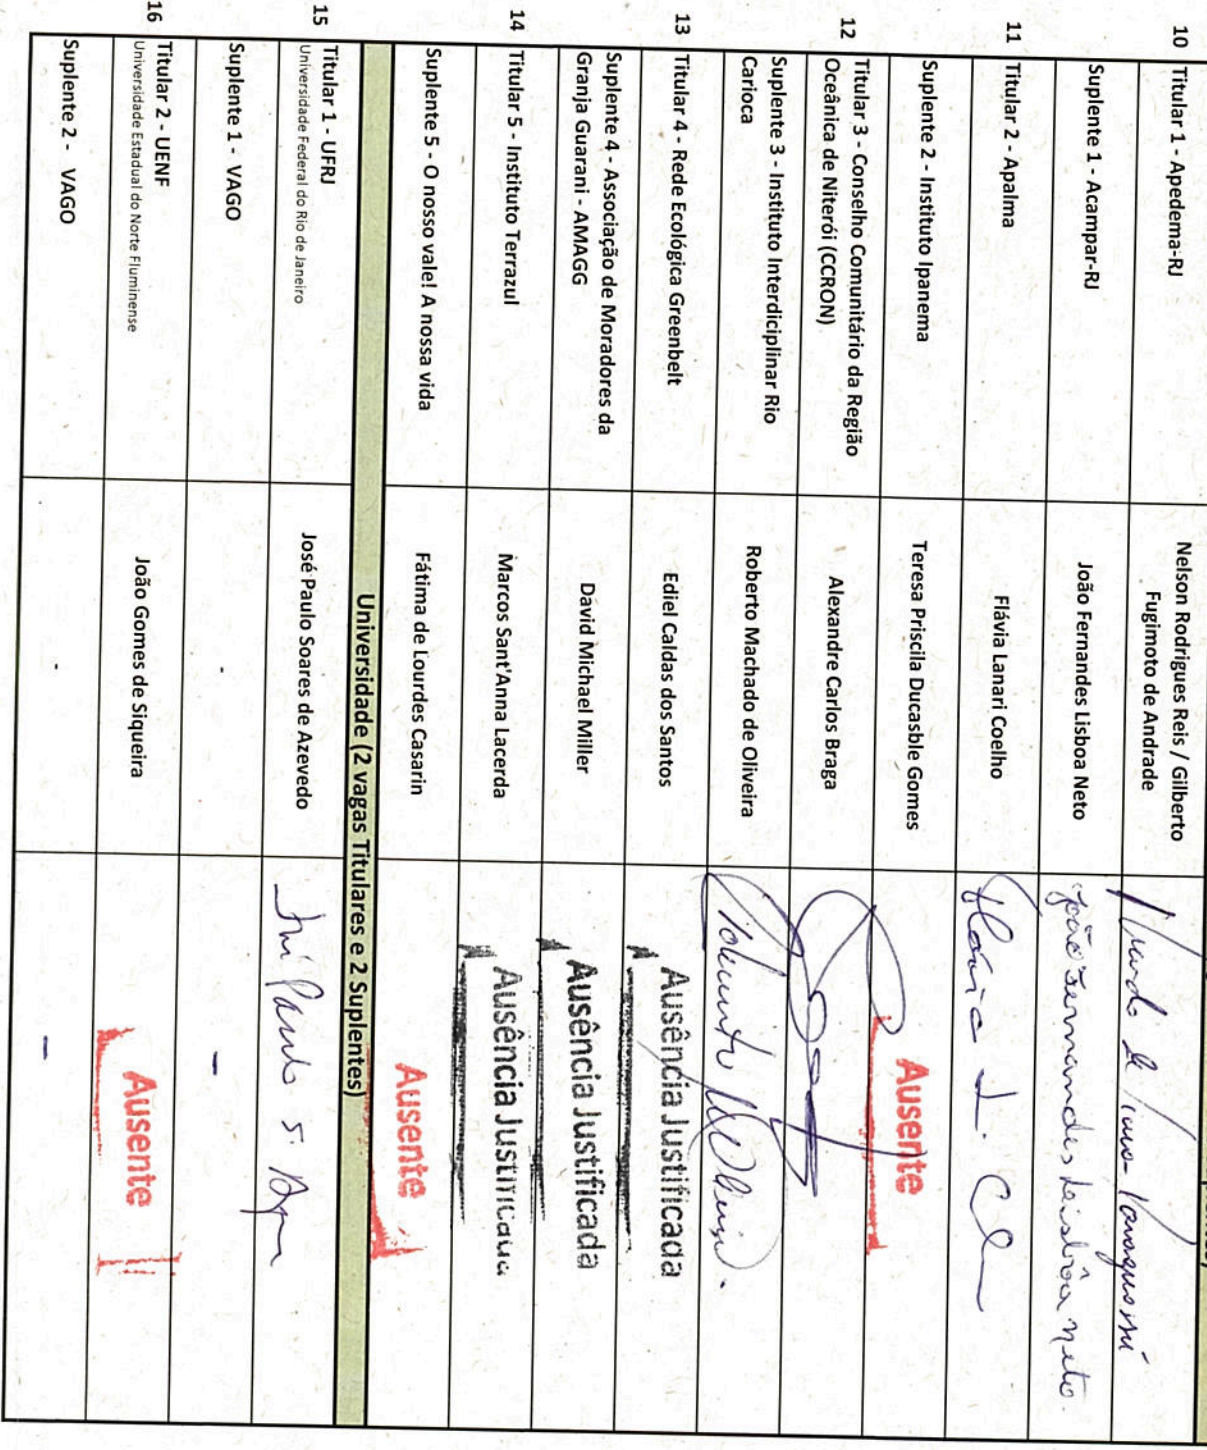 10 Titular 1 - Apedema-RJ
Nelson Rodrigues Reis / Gilberto
Fugimoto de Andrade
Suplente 1 - Acampar-RJ
João Fernandes Lisboa Neto
João Fernandes Lisbôa Neto.
11 Titular 2 - Apalma
Flávia Lanari Coelho
Suplente 2 - Instituto Ipanema
Teresa Priscila Ducasble Gomes
Ausente
12 Titular 3 - Conselho Comunitário da Região
Oceânica de Niterói (CCRON)
Alexandre Carlos Braga
Suplente 3 - Instituto Interdiciplinar Rio
Carioca
Roberto Machado de Oliveira
13 Titular 4 - Rede Ecológica Greenbelt
Ediel Caldas dos Santos
Ausência Justificada
Suplente 4 - Associação de Moradores da
Granja Guarani - AMAGG
David Michael Miller
Ausência Justificada
14 Titular 5 - Instituto Terrazul
Marcos Sant'Anna Lacerda
Ausência Justificada
Suplente 5 - O nosso vale! A nossa vida
Fátima de Lourdes Casarin
Ausente
Universidade (2 vagas Titulares e 2 Suplentes)
15 Titular 1 - UFRJ
Universidade Federal do Rio de Janeiro
José Paulo Soares de Azevedo
Suplente 1 - VAGO
-
16 Titular 2 - UENF
Universidade Estadual do Norte Fluminense
João Gomes de Siqueira
Ausente
Suplente 2 - VAGO
-